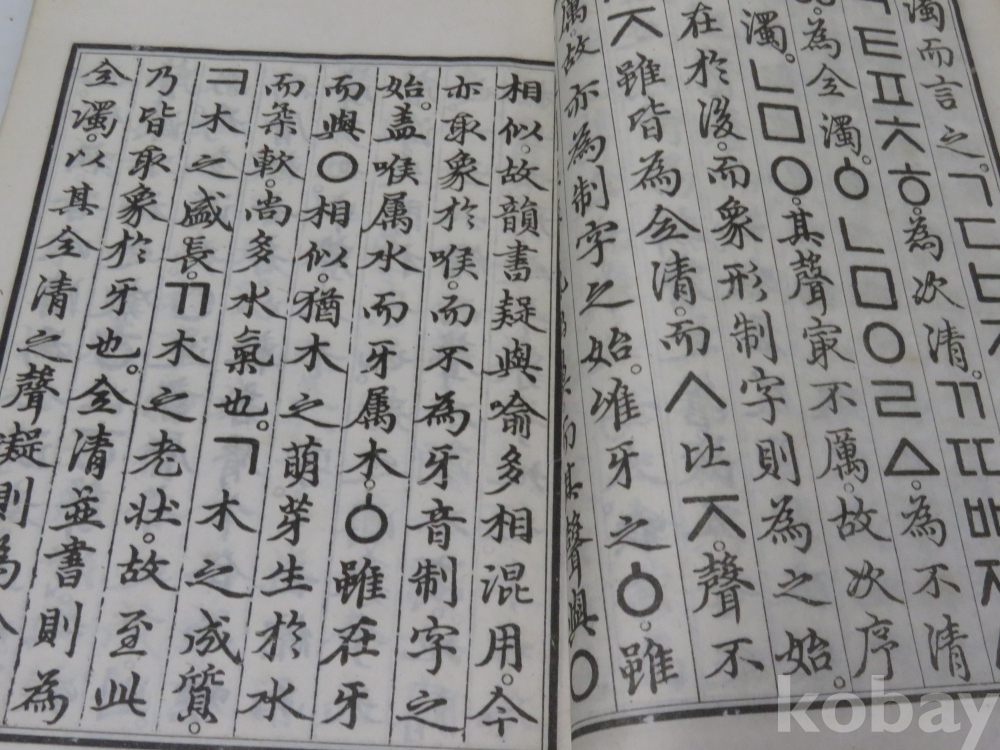 濁而言之。ㄱㄷㅂㅈ
ㅌㅍㅊㅎ。為次清。ㄲㄸㅃㅉ
為全濁。ㆁㄴㅁㅇㄹㅿ。為不清
濁。ㄴㅁㅇ。其聲冣不厲。故次序
在於後。而象形制字則為之始。
ㅈ雖皆為全清。而ㅅ比ㅈ。聲不
厲。故亦為制字之始。唯牙之ㆁ。雖
而其聲與ㅇ
相似。故韻書疑與喻多相混用。今
亦取象於喉。而不為牙音制字之
始。盖喉屬水而牙屬木。ㆁ雖在牙
而與ㅇ相似。猶木之萌芽生於水
而柔軟。尚多水氣也。ㄱ木之成質。
ㅋ木之盛長。ㄲ木之老壯。故至此
乃皆取象於牙也。全清並書則為
全濁。以其全清之聲凝則為全
kobay